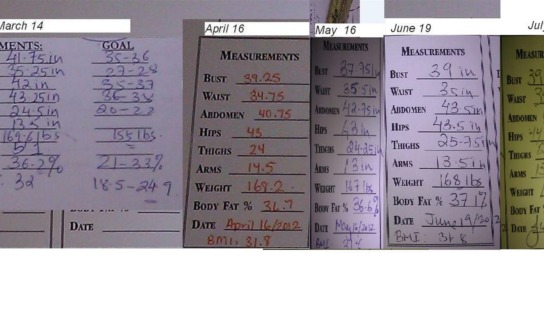 March 14
MENTS: GOAL
41.75in 35-36
35.25in 27-28
42in 35-37
43.25in 36-38
24.5in
13.5in
169.6lbs 155lbs
5'1 =
36.2% 21-33%
32 18.5-24.9
DATE
April 16
MEASUREMENTS
BUST 39.25
WAIST 34.75
ABDOMEN 40.75
HIPS 43
THIGHS 24
ARMS 14.5
WEIGHT 169.2
BODY FAT %
DATE April 16/2012
BMI: 31.8
May 16
MEASUREMENTS
BUST 37.75in
WAIST 35.5in
ABDOMEN 42.75in
HIPS 43in
THIGHS 24.25in
ARMS 13in
WEIGHT 167lbs
BODY FAT % 36.6%
DATE May 16/2012
BMI
June 19
MEASUREMENTS
BUST 39in
WAIST 35in
ABDOMEN 43.5in
HIPS 43.5in
THIGHS 25.75in
ARMS 13.5in
WEIGHT 168lbs
BODY FAT % 37.1%
DATE June 19/20
BMI: 31.8
July
MEASUR
BUST 39
WAIST
ABDOMEN
HIPS
THIGHS
ARMS
WEIGHT
BODY FAT
DATE